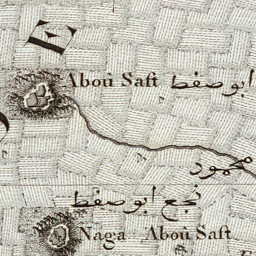 E
Aboù Saft ابو صفط
محمود
نجع ابو صفط
Naga Aboù Saft